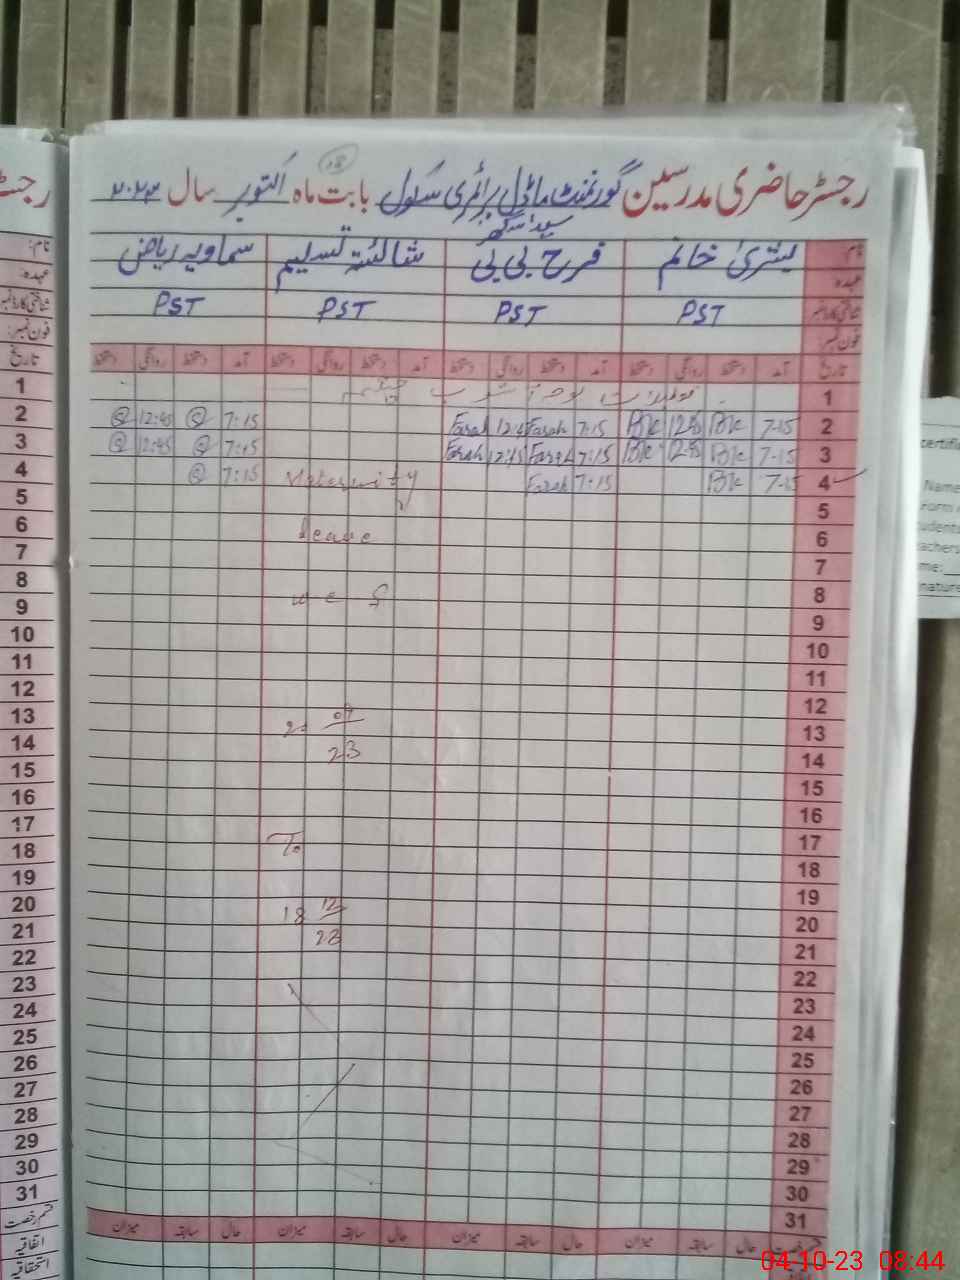 رجسٹر حاضری مدرسین گورنمنٹ ماڈل پرائمری سکول بابت ماہ اکتوبر سال ۲۰۲۳
نام بشریٰ خانم فرح بی بی شائستہ تسلیم سماویہ ریاض
عہدہ
شناختی کارڈ نمبر PST PST PST PST
فون نمبر
تاریخ آمد دستخط روانگی دستخط آمد دستخط روانگی دستخط آمد دستخط روانگی دستخط آمد دستخط روانگی دستخط
1
2 7-15 BK 12:45 BK 7:15 Farah 12:45 Farah 7:15 12:45
3 7-15 BK 12:45 BK 7:15 Farah 12:45 Farah 7:15 12:45
4 7-15 BK 7:15 Farah Maternity 7:15
5
6 leave
7
8 w e f
9
10
11
12
13 09
14 23
15
16
17 To
18
19
20 18 12
21 23
22
23
24
25
26
27
28
29
30
31
حال سابقہ میزان حال سابقہ میزان حال سابقہ میزان حال سابقہ میزان
نام:
عہدہ:
شناختی کارڈ نمبر
فون نمبر:
تاریخ
1
2
3
4
5
6
7
8
9
10
11
12
13
14
15
16
17
18
19
20
21
22
23
24
25
26
27
28
29
30
31
قسم رخصت
اتفاقیہ
استحقاقیہ
Name
04-10-23 08:44